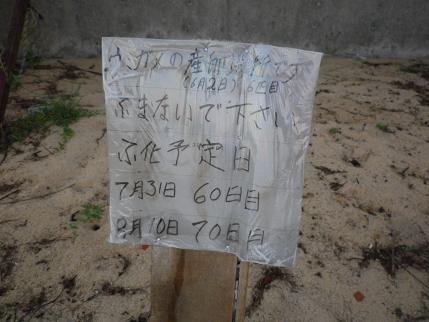 ウミガメの産卵場所です
(6月2日) 6日目
ふまないで下さい
ふ化予定日
7月31日 60日目
8月10日 70日目